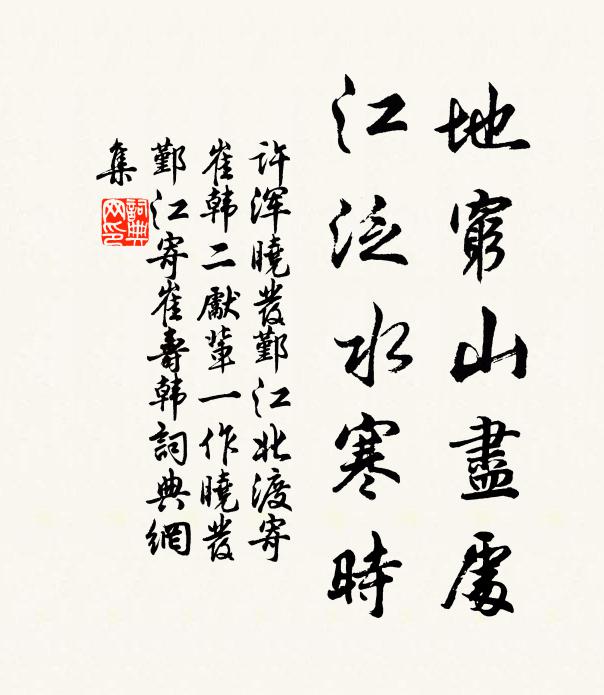 地窮山盡處
江泛水寒時
許渾曉發鄞江北渡寄
崔韓二獻輩一作曉發
鄞江寄崔壽韓詞典網
集
詞典網印